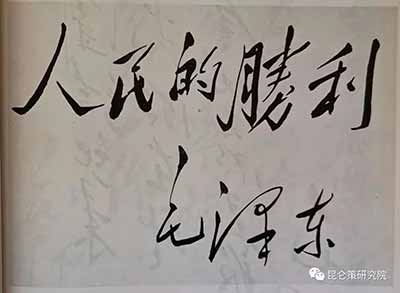 人民的勝利
毛泽东
昆仑策研究院